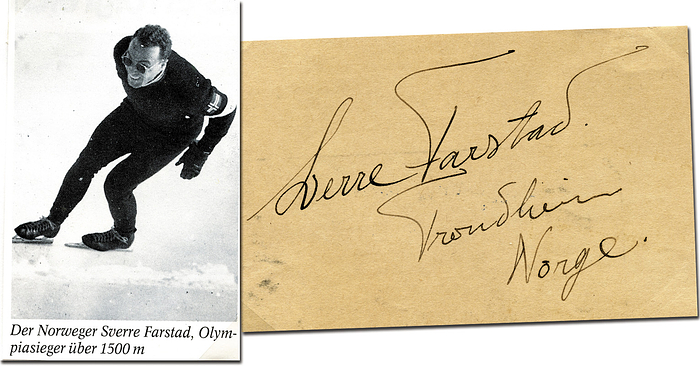 Der Norweger Sverre Farstad, Olym-
piasieger über 1500 m
Sverre Farstad.
Trondheim
Norge.